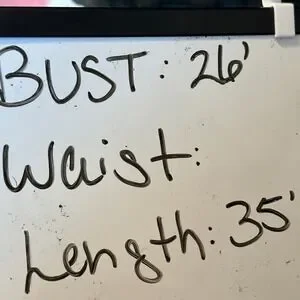 BUST: 26'
Waist:
Length: 35'